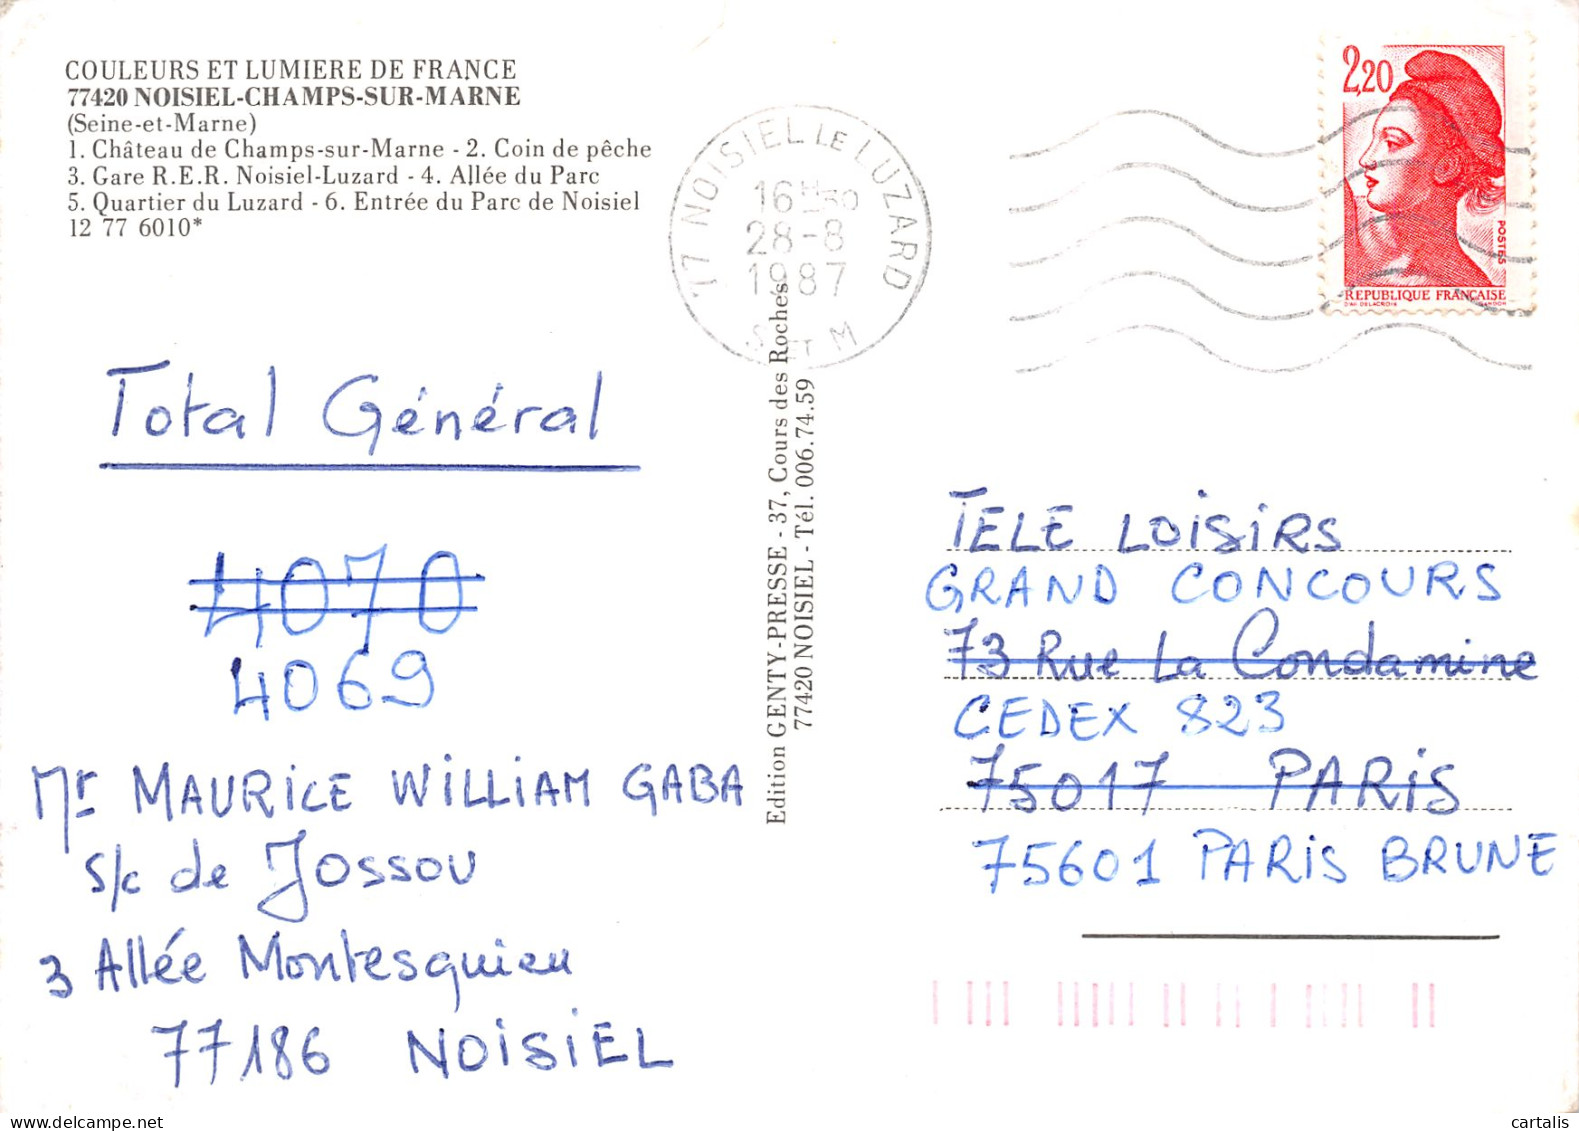 COULEURS ET LUMIERE DE FRANCE
77420 NOISIEL-CHAMPS-SUR-MARNE
(Seine-et-Marne)
1. Château de Champs-sur-Marne - 2. Coin de pêche
3. Gare R.E.R. Noisiel-Luzard - 4. Allée du Parc
5. Quartier du Luzard - 6. Entrée du Parc de Noisiel
12 77 6010*
77 NOISIEL LE LUZARD
16H-30
28-8
1987
S ET M
2,20
POSTES
REPUBLIQUE FRANÇAISE
D'AP. DELACROIX GANDON
Total Général
4070
4069
Mr MAURICE WILLIAM GABA
s/c de Jossou
3 Allée Montesquieu
77186 NOISIEL
Edition GENTY-PRESSE - 37, Cours des Roches
77420 NOISIEL - Tél. 006.74.59
TELE LOISIRS
GRAND CONCOURS
73 Rue La Condamine
CEDEX 823
75017 PARIS
75601 PARIS BRUNE
cartalis